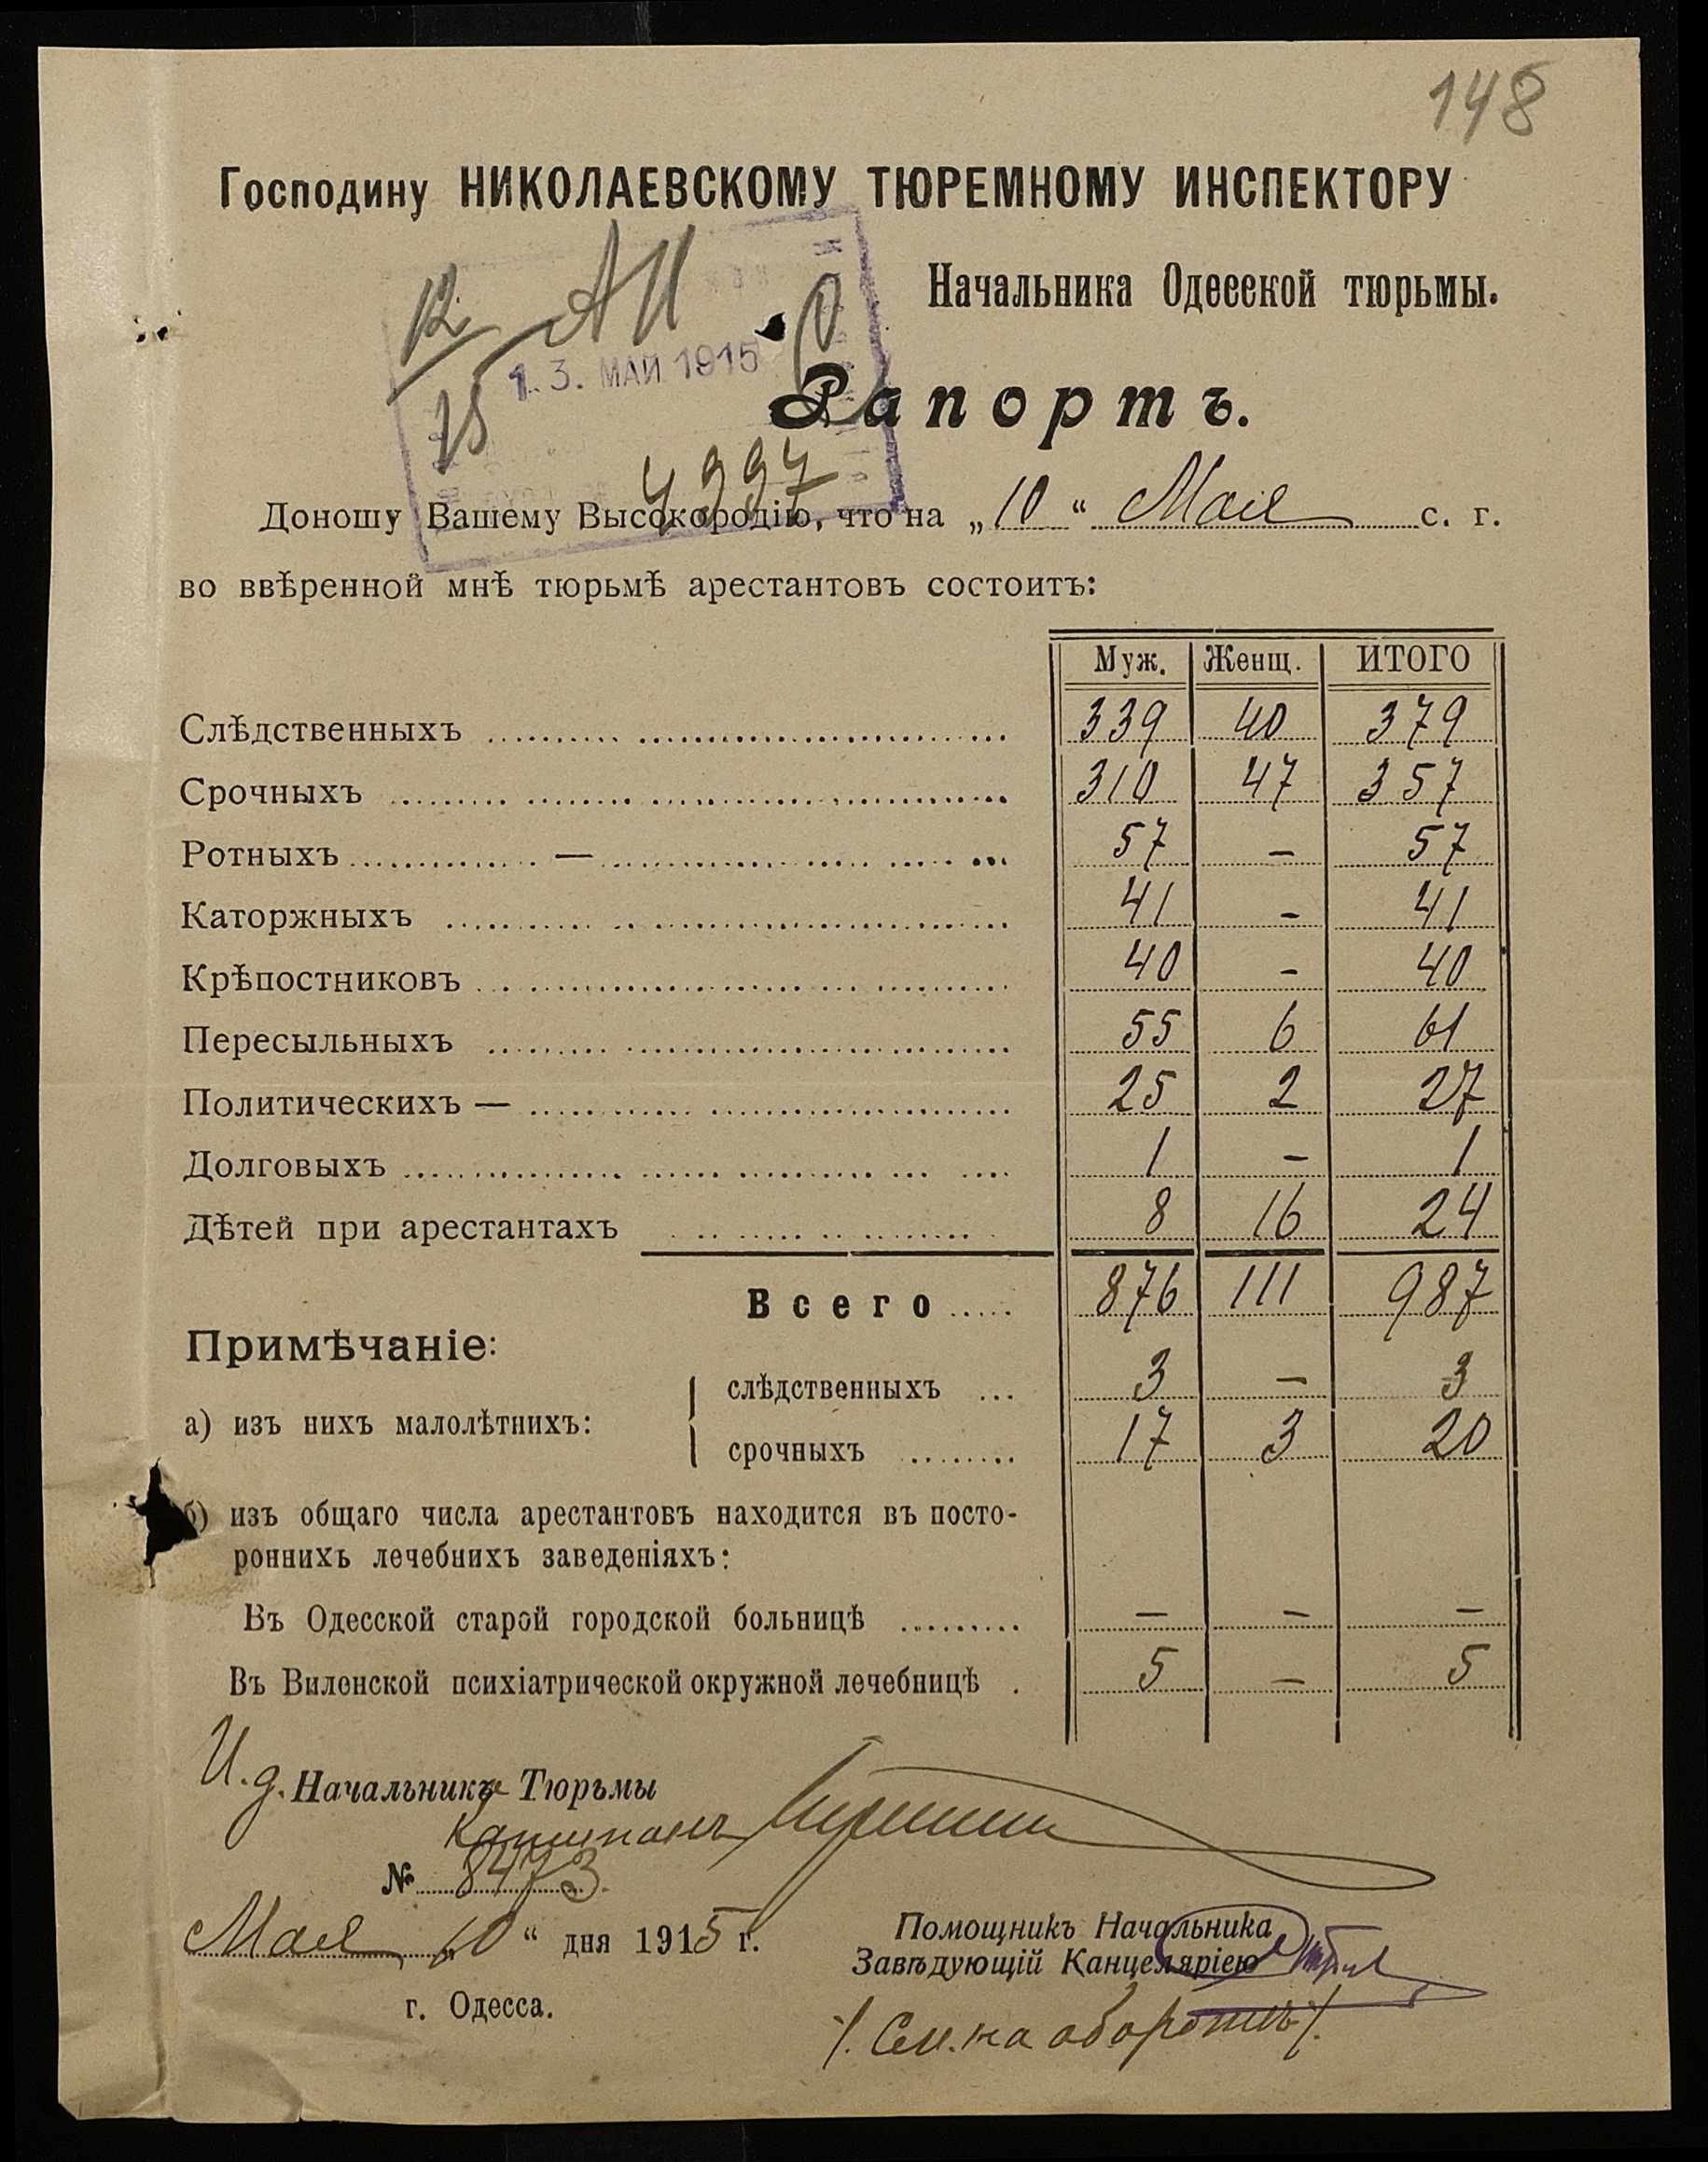 148
Господину НИКОЛАЕВСКОМУ ТЮРЕМНОМУ ИНСПЕКТОРУ
Начальника Одесской тюрьмы.
12
АИ
13. МАЙ 1915
Рапортъ.
4997
Доношу Вашему Высокородію, что на „10“ Мая с. г.
во ввѣренной мнѣ тюрьмѣ арестантовъ состоитъ:
Муж. Женщ. ИТОГО
Слѣдственныхъ 339 40 379
Срочныхъ 310 47 357
Ротныхъ — 57 - 57
Каторжныхъ 41 - 41
Крѣпостниковъ 40 - 40
Пересыльныхъ 55 6 61
Политическихъ — 25 2 27
Долговыхъ 1 - 1
Дѣтей при арестантахъ 8 16 24
Всего 876 111 987
Примѣчаніе:
слѣдственныхъ ... 3 — 3
а) изъ нихъ малолѣтнихъ:
срочныхъ 17 3 20
б) изъ общаго числа арестантовъ находится въ посто-
роннихъ лечебнихъ заведеніяхъ:
Въ Одесской старой городской больницѣ — — —
Въ Виленской психіатрической окружной лечебницѣ 5 — 5
И.д. Начальника Тюрьмы
Капитанъ
№ 8473.
Мая „10“ дня 1915 г.
Помощникъ Начальника
Завѣдующій Канцеляріею
г. Одесса.
/. См. на оборотѣ /.